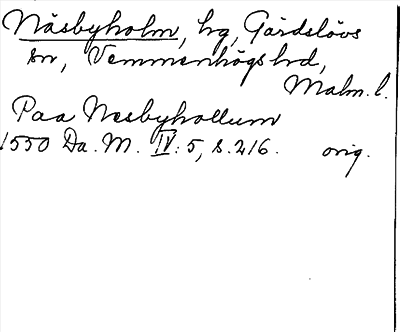 Näsbyholm, hg, Gärdslövs
sn, Vemmenhögs hd,
Malm. l.
Paa Nesbyhollum
1550 Da. M. IV: 5, s. 216. orig.